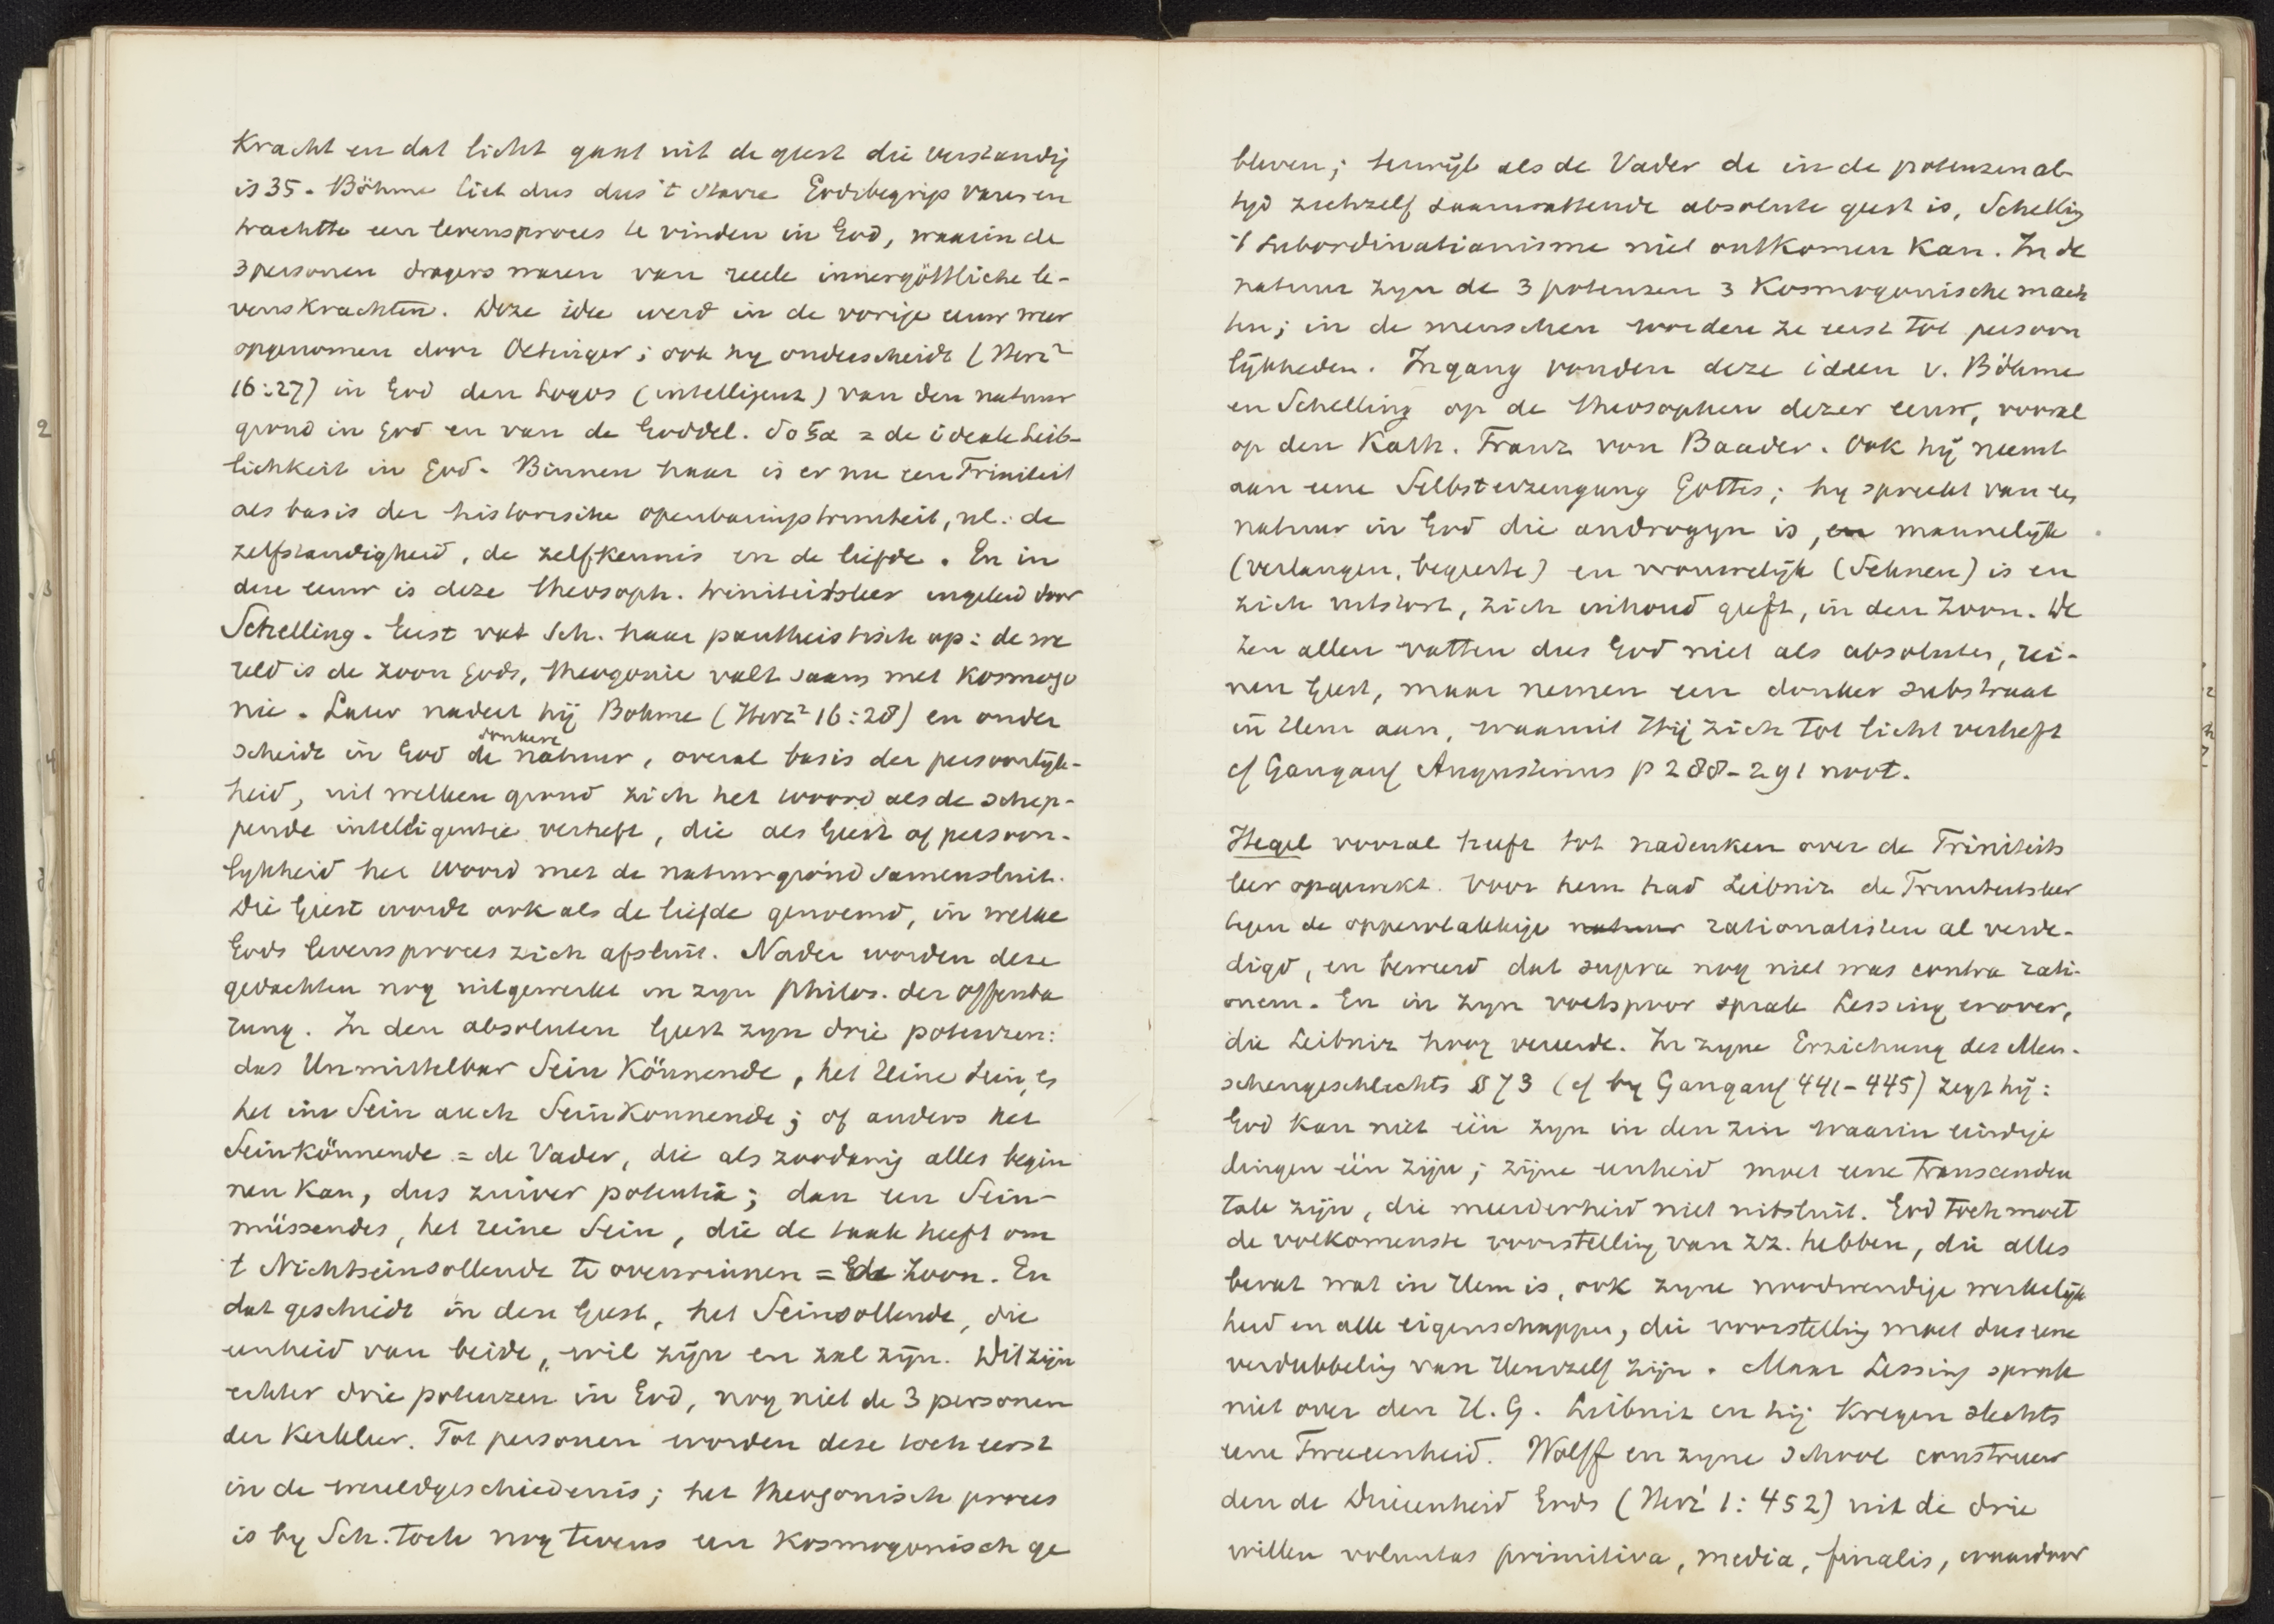 Kracht en dat licht gaat uit de geest die verstandig
is 35. Böhme liet dus dus 't starre Godsbegrip varen en
trachtte een levensproces te vinden in God, waarin de
3 personen dragers waren van reele innergöttliche le-
venskrachten. Deze idee werd in de vorige eeuw weer
opgenomen door Oetinger; ook hy onderscheidt (Herz²
16:27) in God den Logos (intelligenz) van den natuur
grond in God en van de Goddel. δοξα = de ideale Leib-
lichkeit in God. Binnen haar is er nu een Triniteit
als basis der historische openbaringstrinteit, nl: de
zelfstandigheid, de zelfkennis en de liefde. En in
deze eeuw is deze theosoph. triniteitsleer ingeleid door
Schelling. Eerst vat Sch. haar pantheistisch op: de we
reld is de zoon Gods, theogonie valt saam met kosmogo
nie. Later nadert hij Bohme (Herz² 16:28) en onder
scheidt in God de donkere natuur, overal basis der persoonlyk-
heid, uit welken grond zich het woord als de schep-
pende intelligentie verheft, die als Geest of persoon-
lykheid het woord met de natuurgrond samensluit.
Die Geest wordt ook als de liefde genoemd, in welke
Gods levensproces zich afsluit. Nader worden deze
gedachten nog uitgewerkt in zyn Philos. der Offenba
rung. In den absoluten Geest zyn drie potenzen:
das Unmittelbar Sein Könnende, het reine Sein, es
het im Sein auch Seinkonnende; of anders het
Seinkönnende = de Vader, die als zoodanig alles begin
nen kan, dus zuiver potentia; dan een Sein-
müssendes, het reine Sein, die de taak heeft om
't Nichtseinsollende te overwinnen = de Zoon. En
dat geschiedt in den Geest, het Seinsollende, die
eenheid van beide, wil zijn en zal zijn. Dit zijn
echter drie potenzen in God, nog niet de 3 personen
der Kerkleer. Tot personen worden deze toch eerst
in de wereldgeschiedenis; het theogonisch proces
is by Sch. toch nog tevens een kosmogonisch ge
bleven; terwijl als de Vader de in de potenzen al-
tyd zichzelf saamvattende absolute geest is, Schelling
't subordinatianisme niet ontkomen kan. In de
natuur zyn de 3 potenzen 3 Kosmogonische mach
ten; in de menschen worden ze eerst tot persoon
lykheden. Ingang vonden deze ideen v. Böhme
en Schelling op de theosophen dezer eeuw, vooral
op den Kath. Franz von Baader. Ook hij neemt
aan eene Selbsterzeugung Gottes; hy spreekt van ee
natuur in God die androgyn is, en mannelijk
(verlangen, begeerte) en vrouwelijk (Sehnen) is en
zich uitstort, zich inhoud geeft, in den Zoon. De
zen allen vatten dus God niet als absoluten, rei-
nen Geest, maar nemen een donker substraat
in Hem aan, waaruit Hij zich tot licht verheft
cf Gangauf Augustinus p 288-291 noot.
Hegel vooral heeft tot nadenken over de Triniteits
leer opgewekt. Voor hem had Leibniz de Triniteitsleer
tegen de oppervlakkige natuur rationalisten al verde-
digd, en beweerd dat supra nog niet was contra rati-
onem. En in zyn voetspoor sprak Lessing erover,
die Leibniz hoog vereerde. In zyne Erziehung des Men-
schengeschlechts § 73 (cf by Gangauf 441-445) zegt hij:
God kan niet één zyn in den zin waarin eindige
dingen één zijn; zijne eenheid moet eene transcenden
tale zijn, die meerderheid niet uitsluit. God toch moet
de volkomenste voorstelling van zz. hebben, die alles
bevat wat in Hem is, ook zyne noodwendige werkelijk
heid en alle eigenschappen, die voorstelling moet dus eene
verdubbeling van Hemzelf zijn. Maar Lessing sprak
niet over den H. G. Leibniz en hij kregen slechts
eene Tweeenheid. Wolff en zyne school construeer
den de Drieenheid Gods (Herz¹ 1: 452) uit de drie
willen voluntas primitiva, media, finalis, waardoor